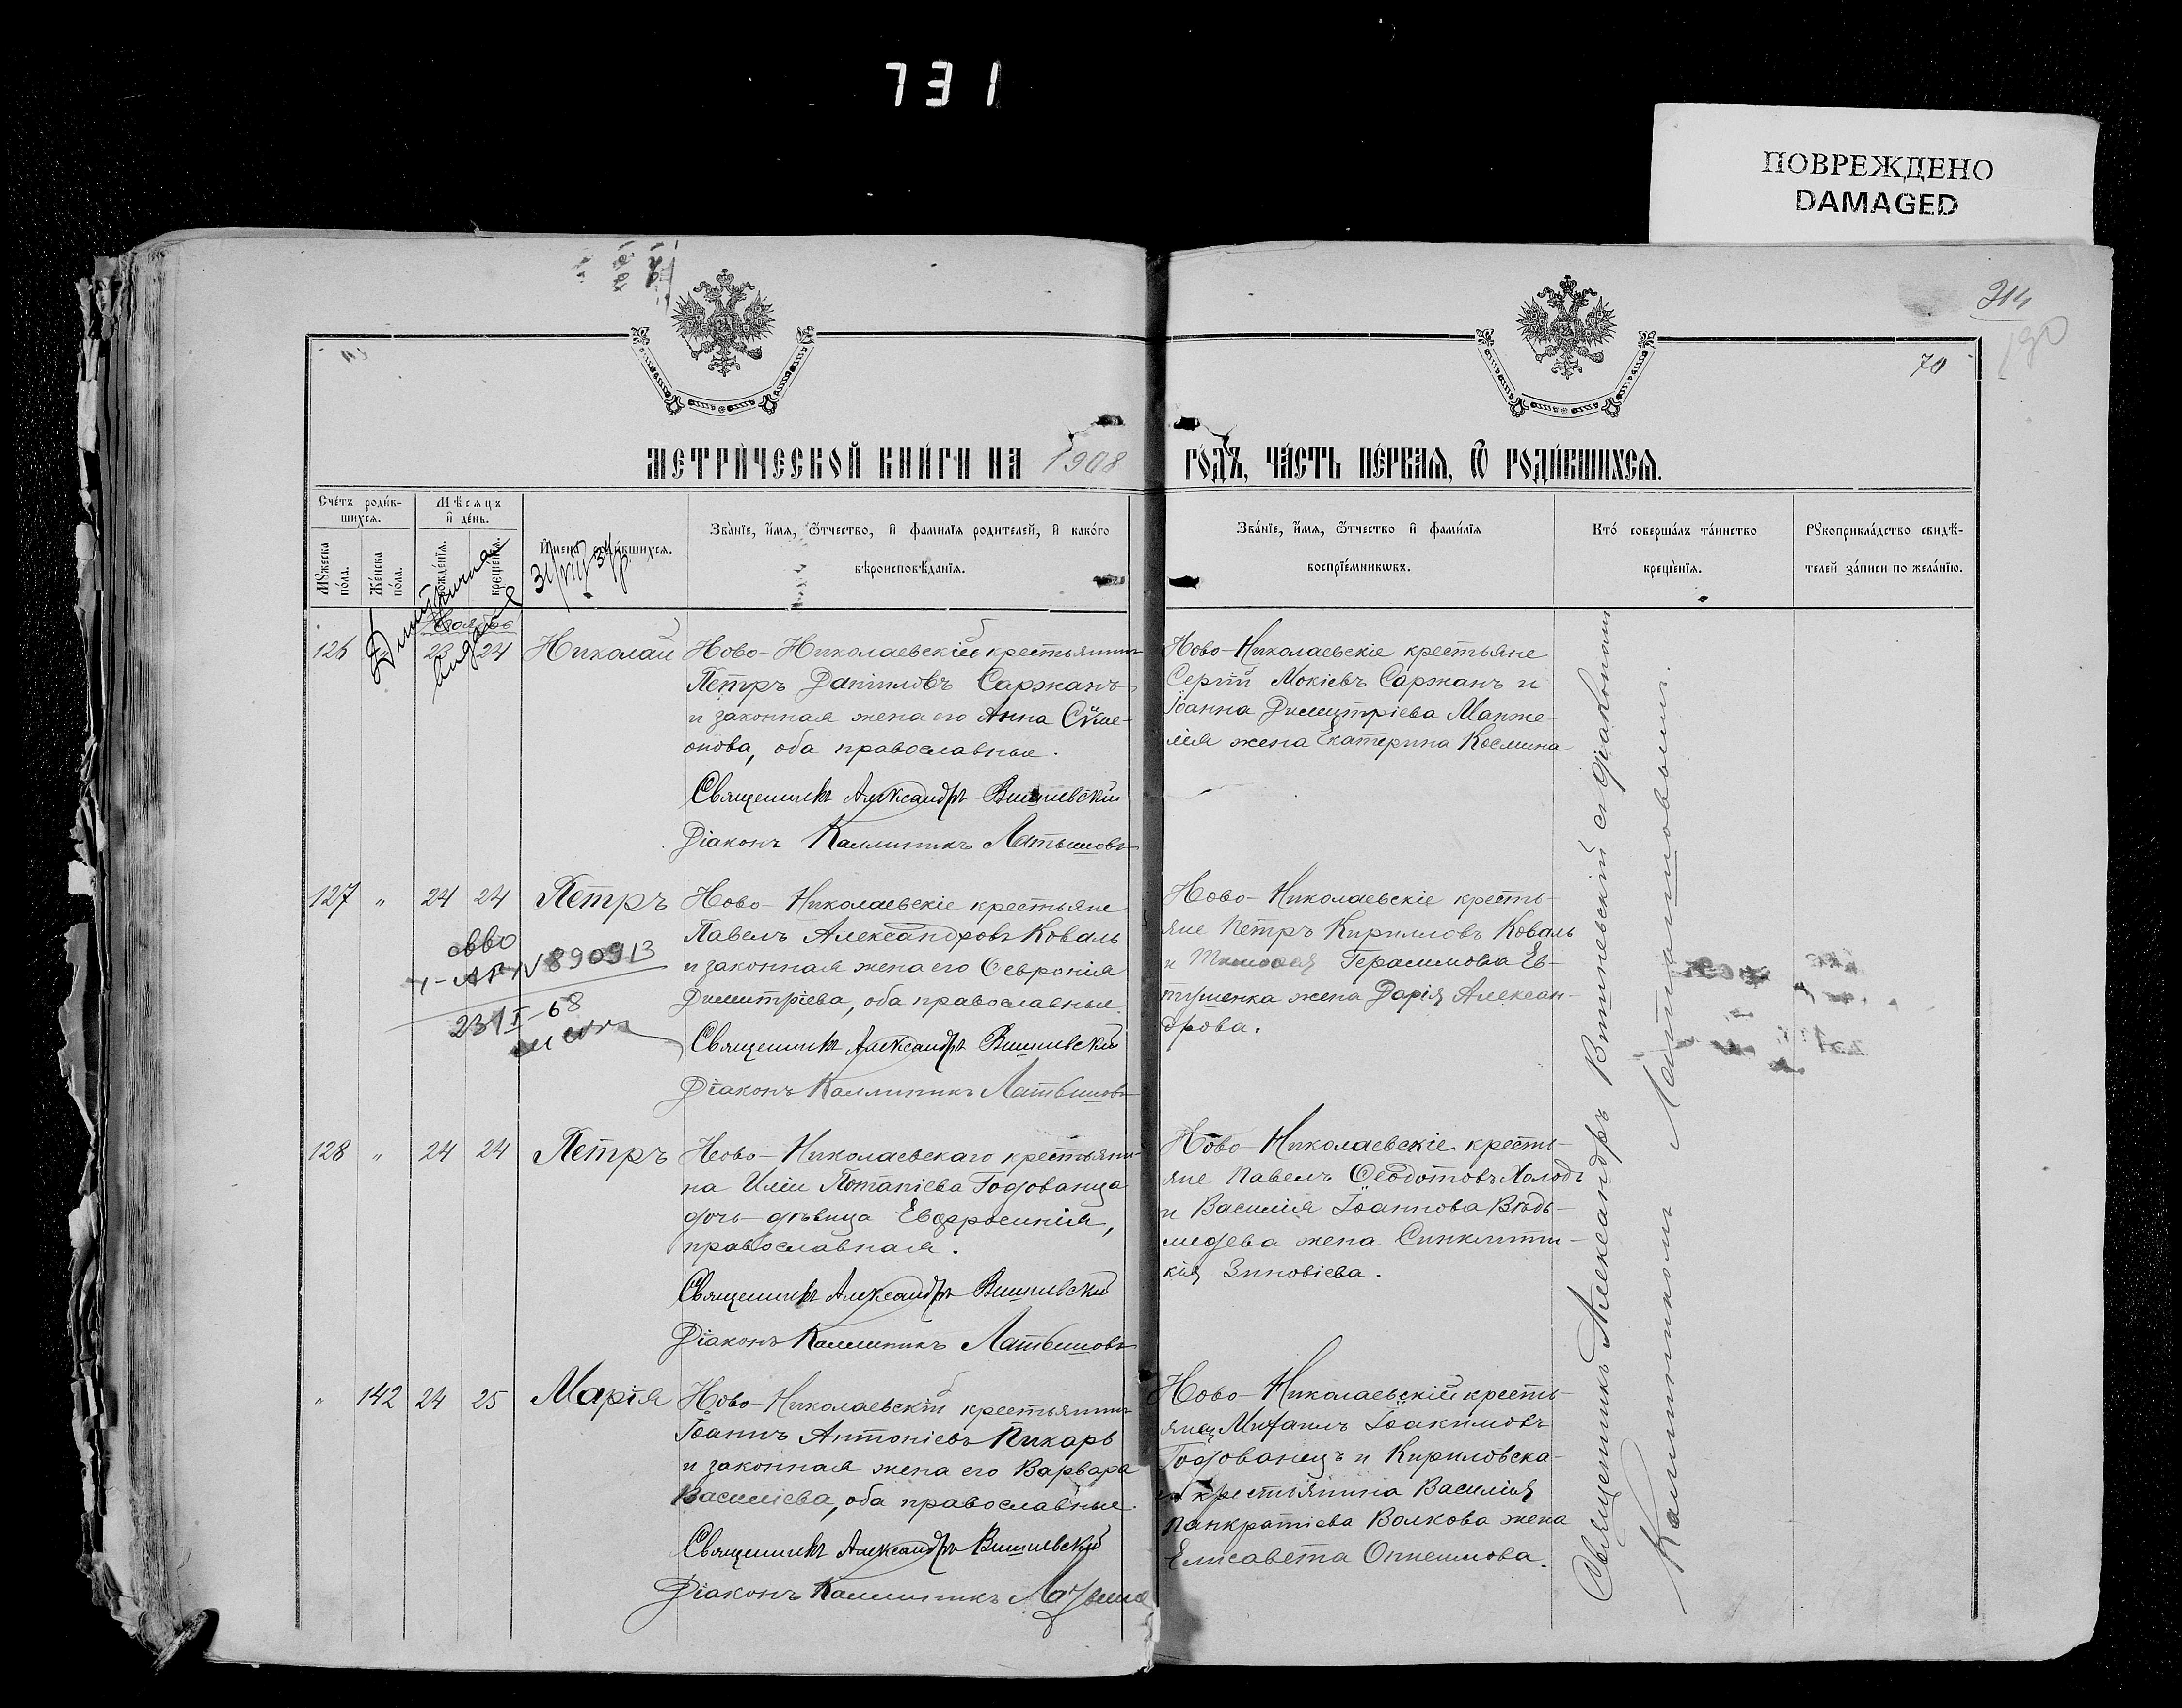 731
ПОВРЕЖДЕНО
DAMAGED
314
190
70
МЕТРИЧЕСКОЙ КНИГИ НА 1908
ГОДЪ, ЧАСТЬ ПЕРВАЯ, Ѿ РОДИВШИХСЯ.
Счетъ родив-
шихся.
Мѣсяцъ
и день.
Имена родившихся.
Званіе, имя, ѿчество, и фамилія родителей, и какого
вѣроисповѣданія.
Мужеска
пола.
Женска
пола.
рожденія.
крещенія.
Званіе, имя, ѿчество и фамилія
воспріемниковъ.
Кто совершалъ таинство
крещенія.
Рукоприкладство свидѣ-
телей записи по желанію.
Ноябрь
126 23 24 Николай
Ново-Николаевскій крестьянинъ
Петръ Даніиловъ Саржанъ
и законная жена его Анна Сѵме-
онова, оба православные.
Священникъ Александръ Вишневскій
Діаконъ Каллиникъ Латышовъ
Ново-Николаевскіе крестьяне
Сергій Мокіевъ Саржанъ и
Іоанна Димитріева Манже-
лія жена Екатерина Космина
127 " 24 24 Петръ
Ново-Николаевскіе крестьяне
Павелъ Александровъ Коваль
и законная жена его Ѳеvронія
Димитріева, оба православные.
Священникъ Александръ Вишневскій
Діаконъ Каллиникъ Латышовъ
N 890913
23/I-68
Ново-Николаевскіе кресть-
яне Петръ Кирилловъ Коваль
и Герасимова Ев-
тушенка жена Дарія Алексан-
дрова.
128 " 24 24 Петръ
Ново-Николаевскаго крестьяни-
на Иліи Потапіева Годованца
дочь-дѣвица Евфросинія,
православная.
Священникъ Александръ Вишневскій
Діаконъ Каллиникъ Латышовъ
Ново-Николаевскіе кресть-
яне Павелъ Ѳеодотовъ Холодъ
и Василія Іоаннова Вѣдь-
медева жена Синклити-
кія Зиновіева.
" 142 24 25 Марія
Ново-Николаевскій крестьянинъ
Іоаннъ Антоніевъ Пикарь
и законная жена его Варвара
Василіева, оба православные.
Священникъ Александръ Вишневскій
Діаконъ Каллиникъ
Ново-Николаевскій кресть-
янец Михаилъ Іоакимовъ
Годованецъ и Кириловска-
крестьянина Василія
Панкратіева Волкова жена
Елисавета Онисимова.
Священникъ Александръ Вишневскій съ діакономъ
Каллиникомъ Латышовымъ.